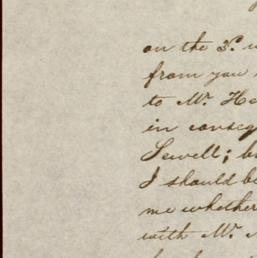 on the 3.
from you
to Mr. He
in conseq
Sewell; b
I should be
me whether
with Mr.